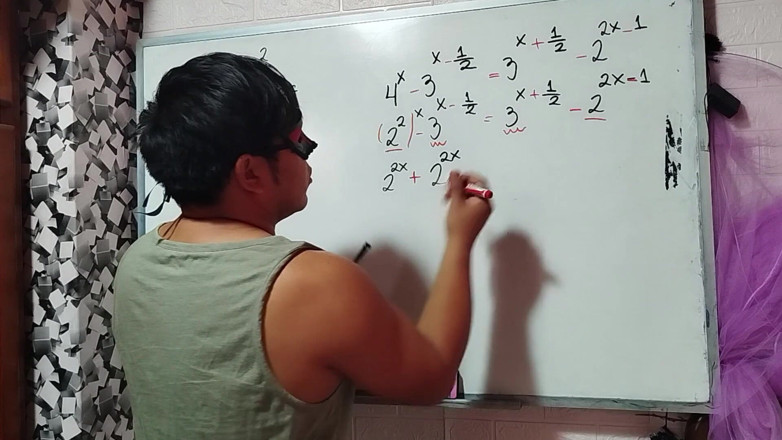 2
4^x - 3^{x - 1/2} = 3^{x + 1/2} - 2^{2x - 1}
(2^2)^x - 3^{x - 1/2} = 3^{x + 1/2} - 2^{2x - 1}
2^{2x} + 2^{2x}